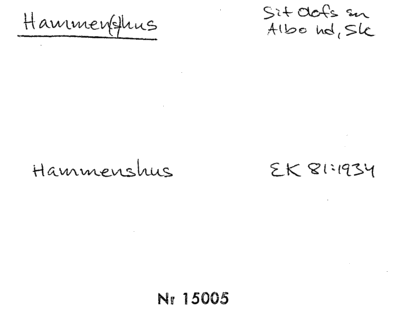 Hammen(s)hus
S:t Olofs sn
Albo hd, Sk
Hammenshus
EK 81:1934
Nr 15005